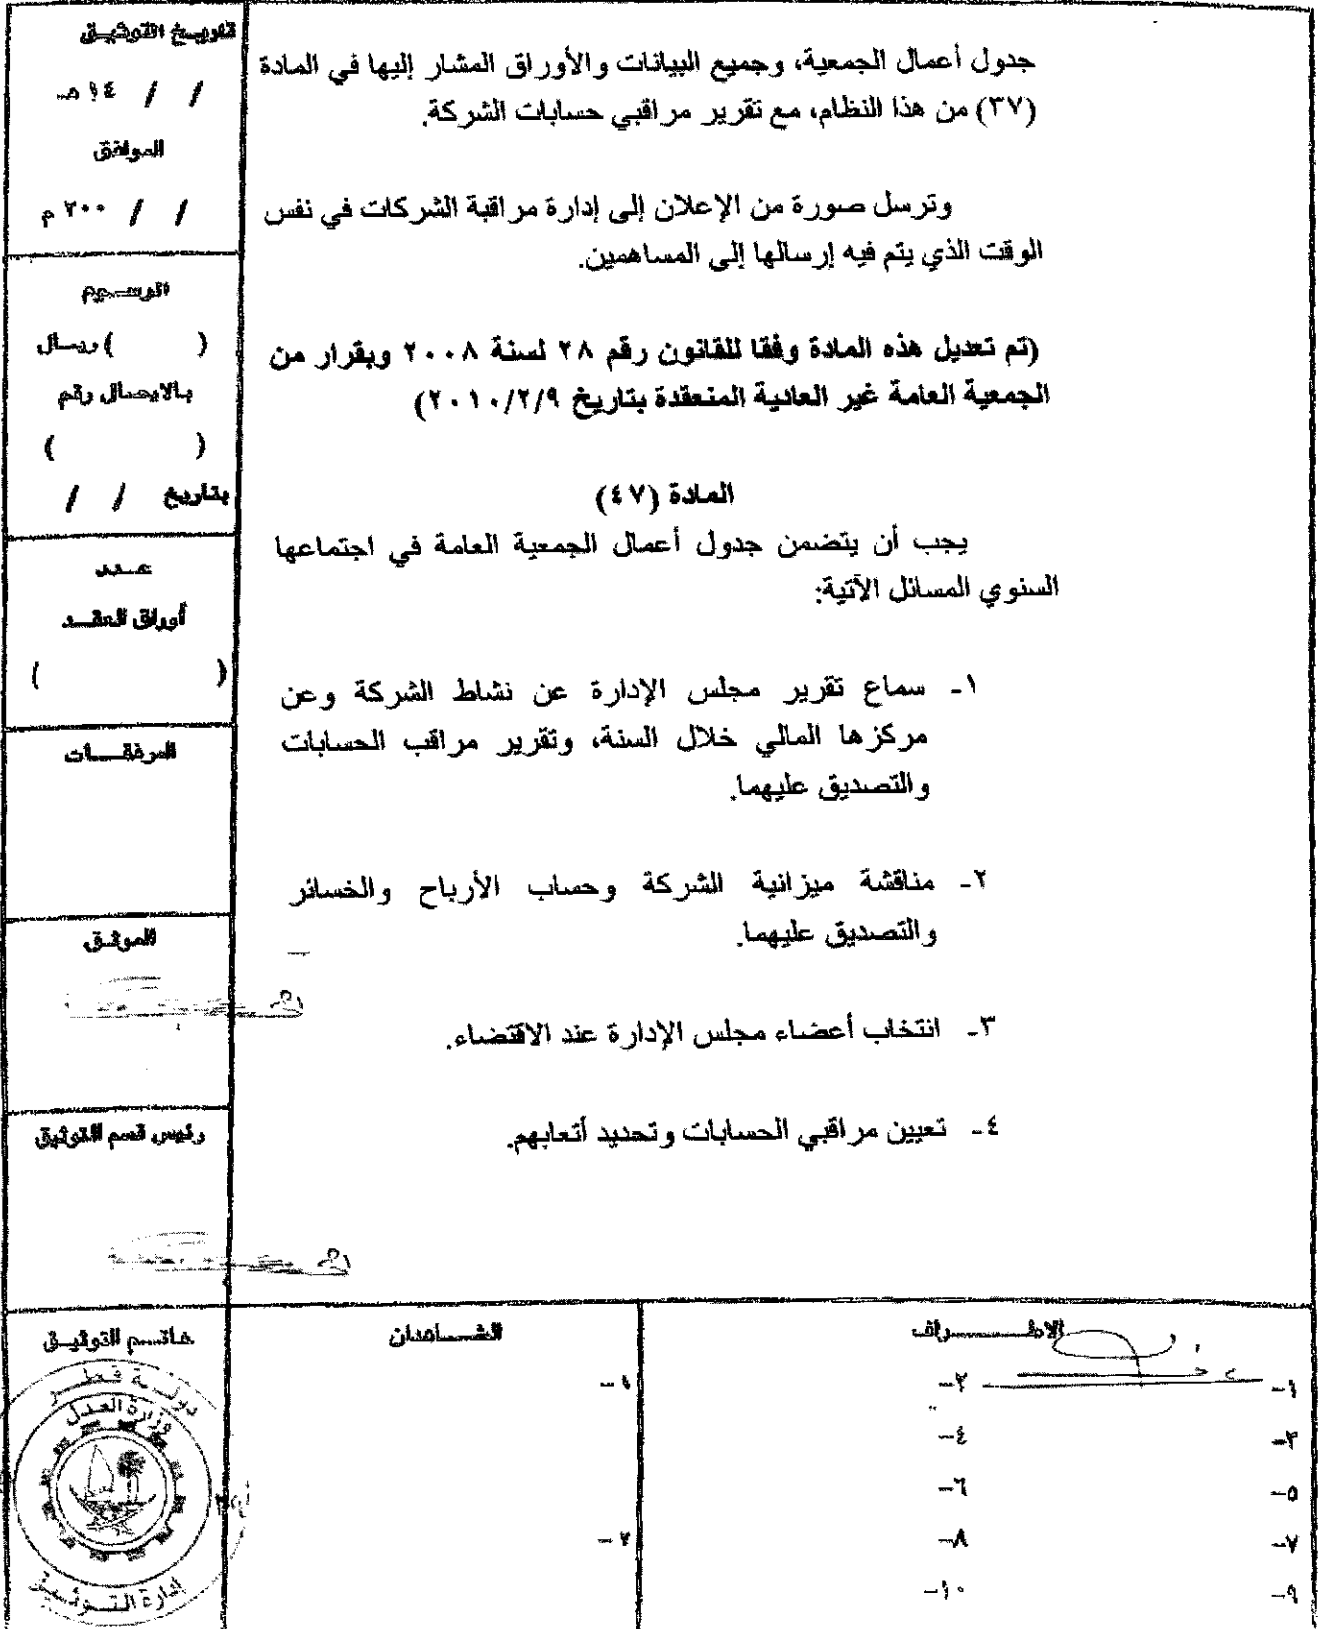 جدول أعمال الجمعية، وجميع البيانات والأوراق المشار إليها في المادة
(٣٧) من هذا النظام، مع تقرير مراقبي حسابات الشركة.
وترسل صورة من الإعلان إلى إدارة مراقبة الشركات في نفس
الوقت الذي يتم فيه إرسالها إلى المساهمين.
(تم تعديل هذه المادة وفقا للقانون رقم ٢٨ لسنة ٢٠٠٨ وبقرار من
الجمعية العامة غير العادية المنعقدة بتاريخ ٢٠١٠/٢/٩)
المادة (٤٧)
يجب أن يتضمن جدول أعمال الجمعية العامة في اجتماعها
السنوي المسائل الآتية:
١- سماع تقرير مجلس الإدارة عن نشاط الشركة وعن
مركزها المالي خلال السنة، وتقرير مراقب الحسابات
والتصديق عليهما.
٢- مناقشة ميزانية الشركة وحساب الأرباح والخسائر
والتصديق عليهما.
٣- انتخاب أعضاء مجلس الإدارة عند الاقتضاء.
٤- تعيين مراقبي الحسابات وتحديد أتعابهم.
تاريخ التوثيق
/ / ١٤ هـ
الموافق
/ / ٢٠٠ م
الرسوم
( ) ريال
بالايصال رقم
( )
بتاريخ / /
عدد
أوراق العقد
( )
المرفقات
الموثق
رئيس قسم التوثيق
خاتم التوثيق
دولة قطر
وزارة العدل
إدارة التوثيق
الشاهدان
١-
٢-
الاطراف
١- ٢-
٣- ٤-
٥- ٦-
٧- ٨-
٩- ١٠-